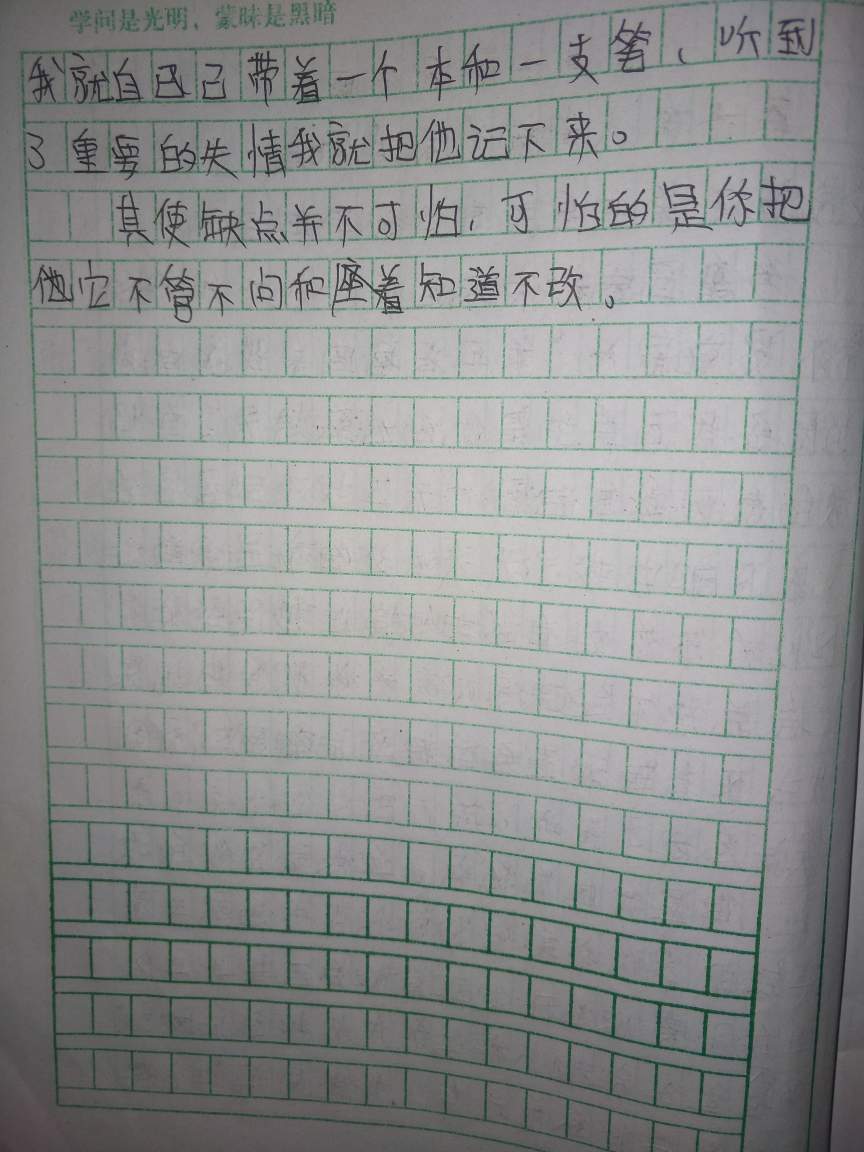 学问是光明，蒙昧是黑暗
我就自已己带着一个本和一支笔、听到
了重要的失情我就把他记下来。
其使缺点并不可怕，可怕的是你把
他它不管不问和座着知道不改。